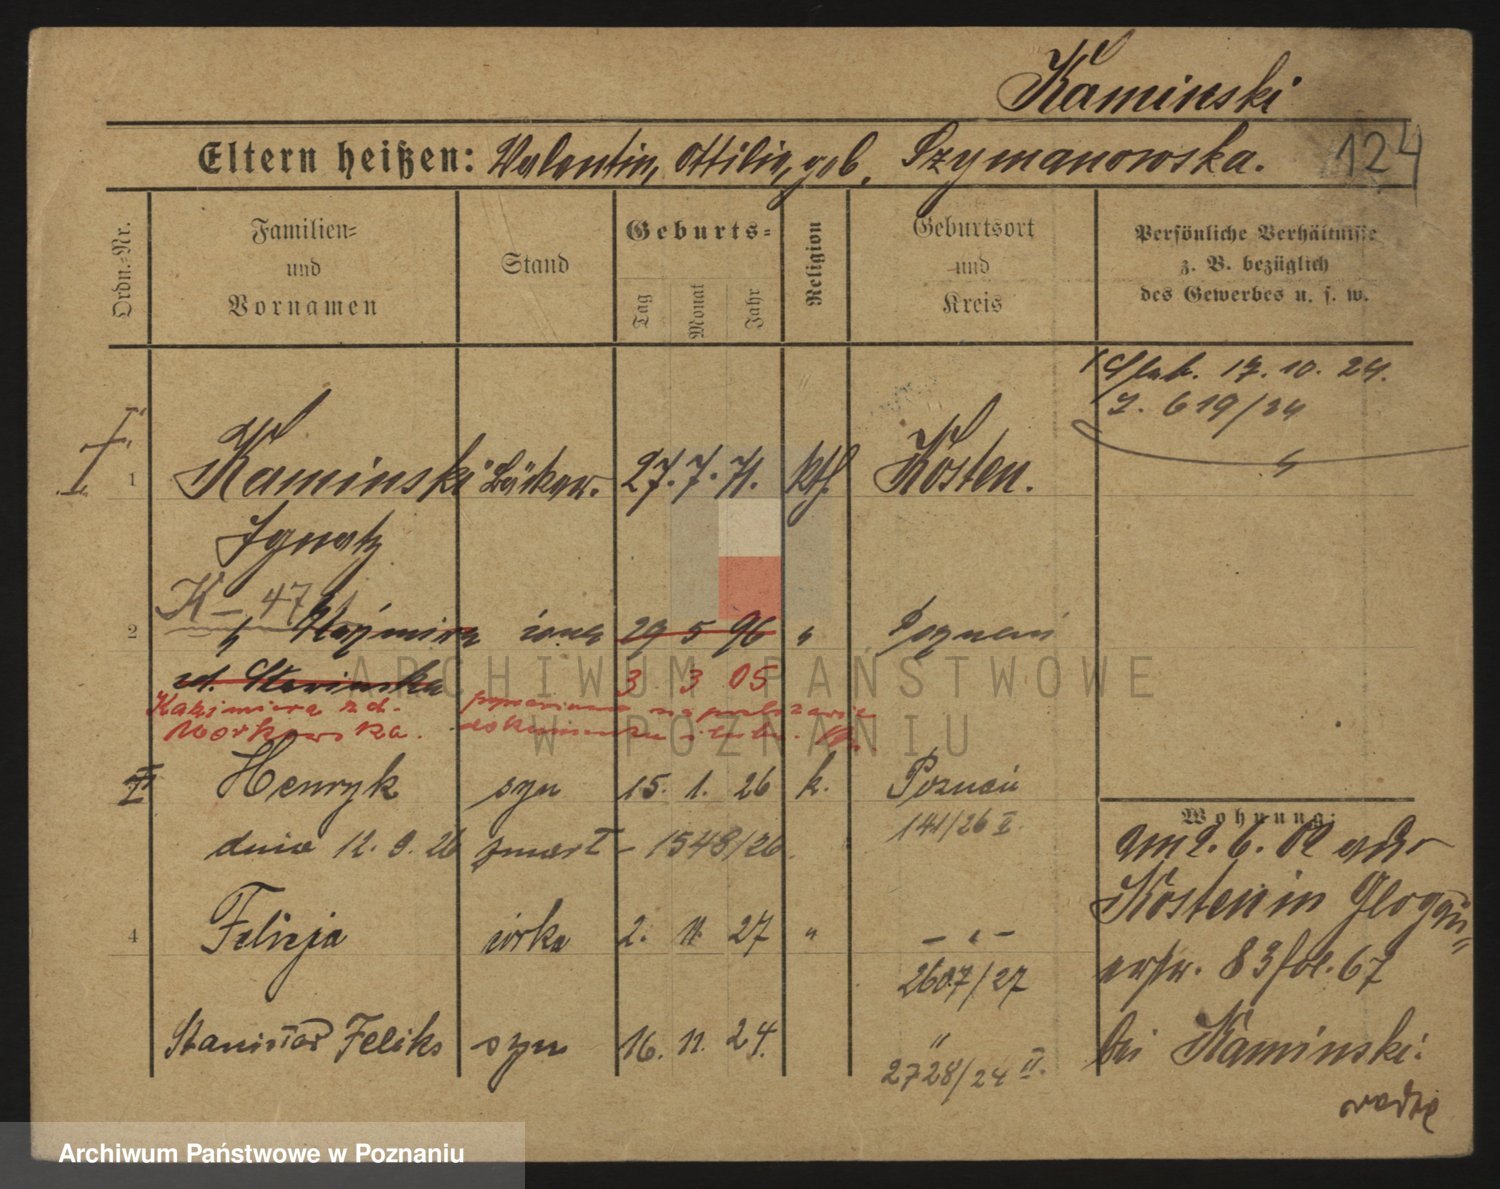 Kaminski
Eltern heißen: Valentin, Ottilie, geb. Szymanowska.
124
Ordn.-Nr.
Familien- und Vornamen
Stand
Geburts-
Tag Monat Jahr
Religion
Geburtsort und Kreis
Persönliche Verhältnisse
z. B. bezüglich
des Gewerbes u. s. w.
17. 10. 24.
J. 619/24
1 Kaminski Bäcker. 27. 7. 71. kth. Kosten.
Ignatz
K – 47
2 " Kazimira żona 29 5 96 " Poznań
zd.
3 3 05
Kazimiera zd.
Morkowska.
Henryk syn 15. 1. 26 k. Poznań
141/26 II.
dnia 12. 9. 26 zmarł – 1548/26.
4 Felicja córka 2. 11. 27 " – " –
2607/27
Stanisław Feliks syn 16. 11. 24. "
2728/24 II.
Wohnung:
am 2. 6. 02
Kosten in
83 fol. 67
bei Kaminski.
ARCHIWUM PAŃSTWOWE
W POZNANIU
Archiwum Państwowe w Poznaniu